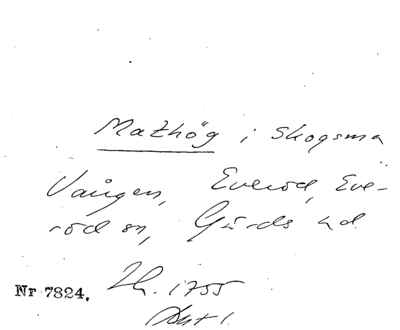 Mathög i Skogsma
Vången, Everöd, Eve-
röd sn, Gärds hd.
Nr 7824. Lh. 1755